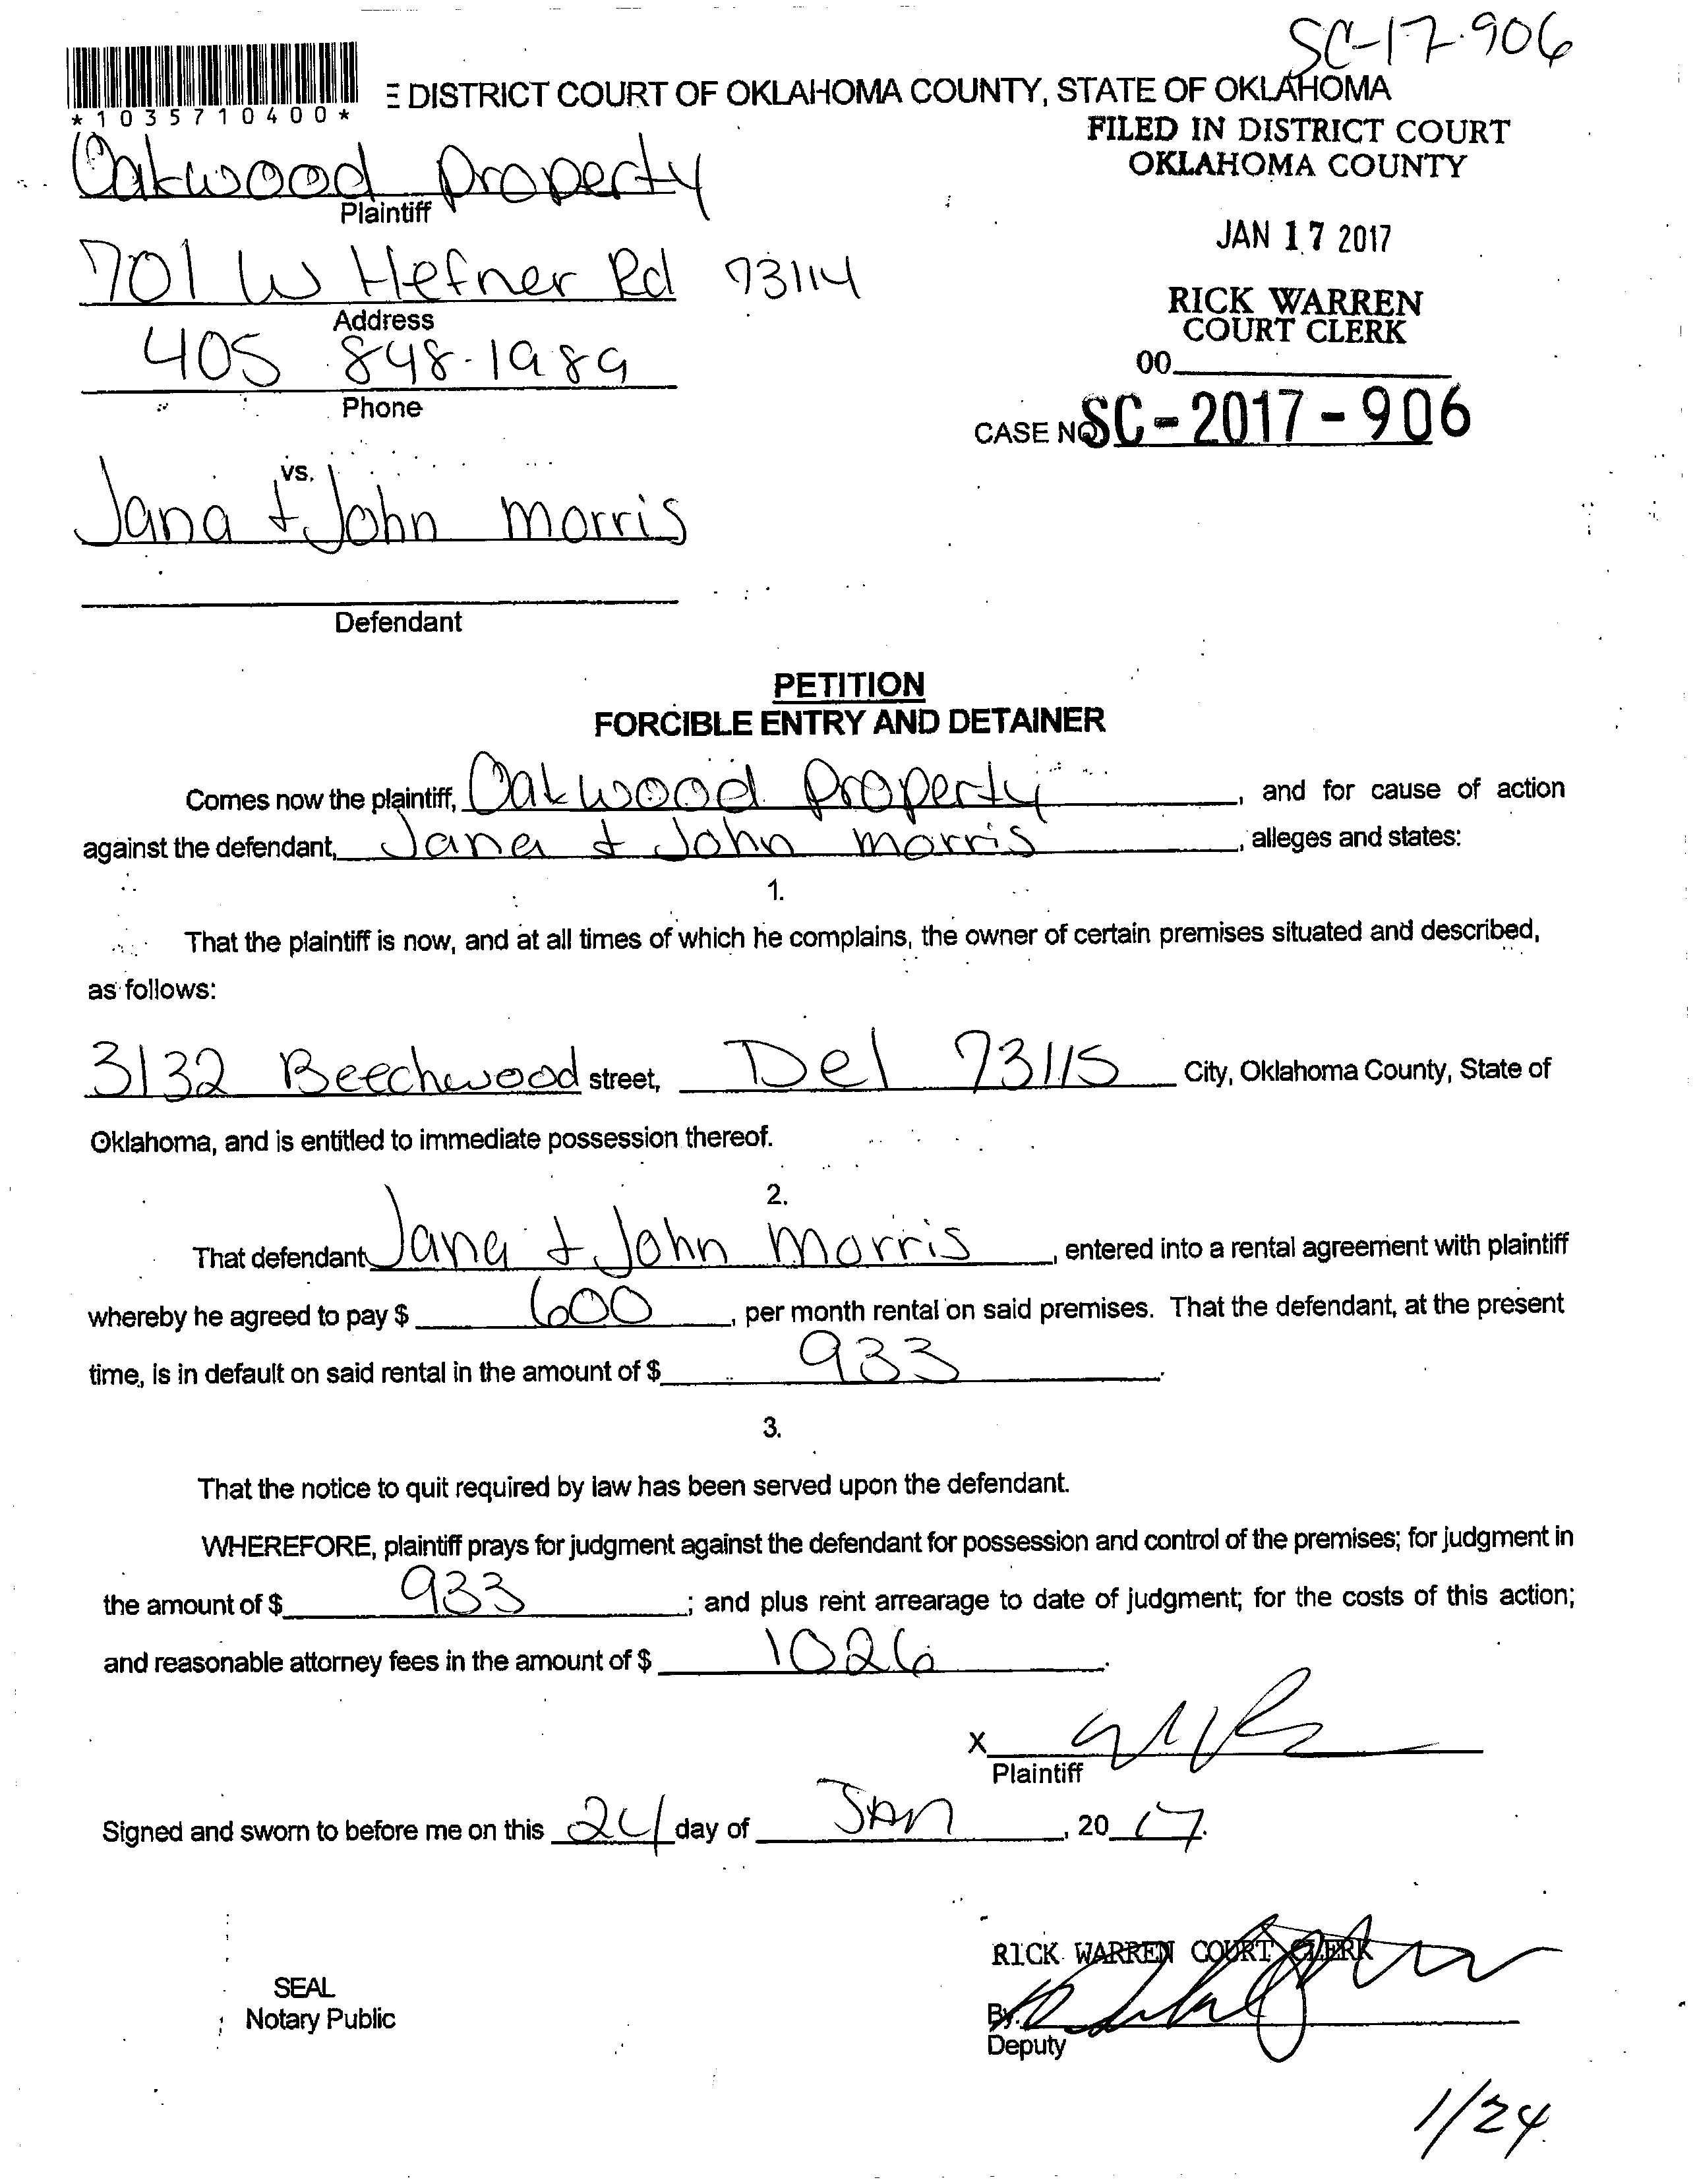 SC-17-906
DISTRICT COURT OF OKLAHOMA COUNTY, STATE OF OKLAHOMA
*1035710400*
FILED IN DISTRICT COURT
OKLAHOMA COUNTY
Oakwood Property
Plaintiff
JAN 17 2017
701 W Hefner Rd 73114
Address
RICK WARREN
COURT CLERK
405 848-1989
00
Phone
CASE NO SC-2017-906
vs.
Jana + John Morris
Defendant
PETITION
FORCIBLE ENTRY AND DETAINER
Comes now the plaintiff, Oakwood Property, and for cause of action
against the defendant, Jana + John Morris, alleges and states:
1.
That the plaintiff is now, and at all times of which he complains, the owner of certain premises situated and described,
as follows:
3132 Beechwood street, Del 73115 City, Oklahoma County, State of
Oklahoma, and is entitled to immediate possession thereof.
2.
That defendant Jana + John Morris, entered into a rental agreement with plaintiff
whereby he agreed to pay $ 600, per month rental on said premises. That the defendant, at the present
time, is in default on said rental in the amount of $ 933.
3.
That the notice to quit required by law has been served upon the defendant.
WHEREFORE, plaintiff prays for judgment against the defendant for possession and control of the premises; for judgment in
the amount of $ 933; and plus rent arrearage to date of judgment; for the costs of this action;
and reasonable attorney fees in the amount of $ 1026.
X
Plaintiff
Signed and sworn to before me on this 24 day of JAN, 20 17.
RICK WARREN COURT CLERK
SEAL
Notary Public
By.
Deputy
1/24